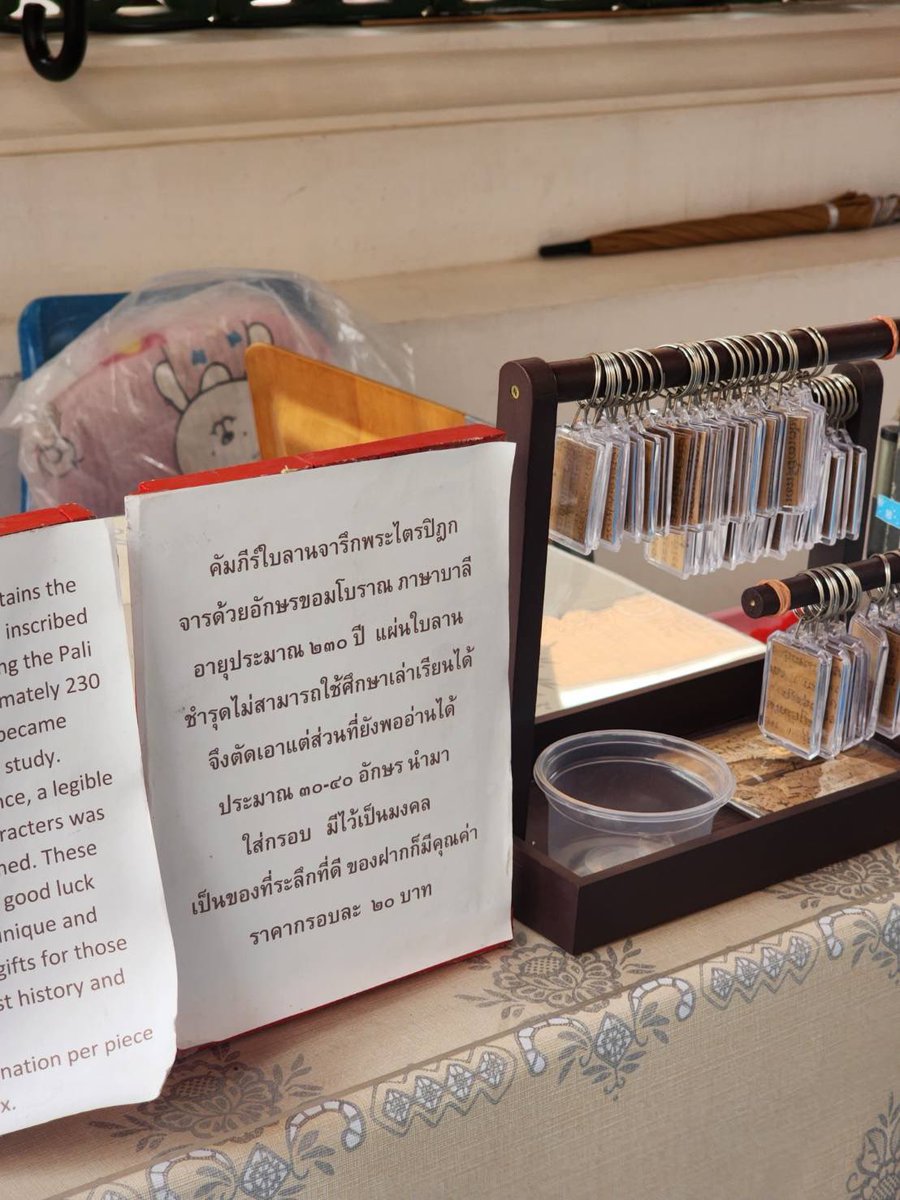 tains the
inscribed
ng the Pali
mately 230
became
study.
nce, a legible
racters was
ned. These
good luck
nique and
gifts for those
st history and
nation per piece
x.
คัมภีร์ใบลานจารึกพระไตรปิฎก
จารด้วยอักษรขอมโบราณ ภาษาบาลี
อายุประมาณ ๒๓๐ ปี แผ่นใบลาน
ชำรุดไม่สามารถใช้ศึกษาเล่าเรียนได้
จึงตัดเอาแต่ส่วนที่ยังพออ่านได้
ประมาณ ๓๐-๔๐ อักษร นำมา
ใส่กรอบ มีไว้เป็นมงคล
เป็นของที่ระลึกที่ดี ของฝากก็มีคุณค่า
ราคากรอบละ ๒๐ บาท